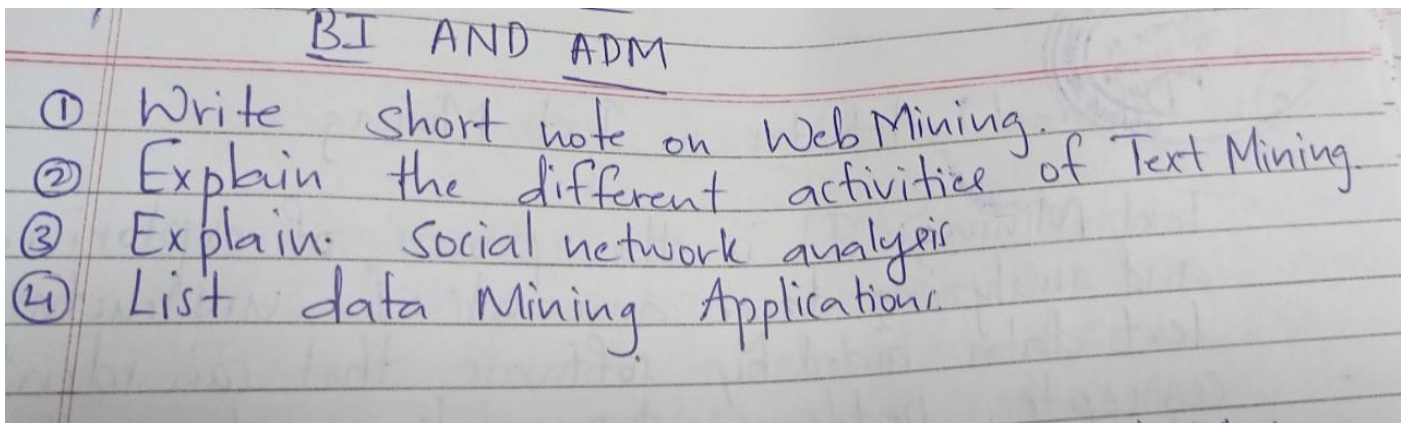 BI AND ADM
① Write short note on Web Mining.
② Explain the different activities of Text Mining.
③ Explain. Social network analysis
④ List data Mining Applications